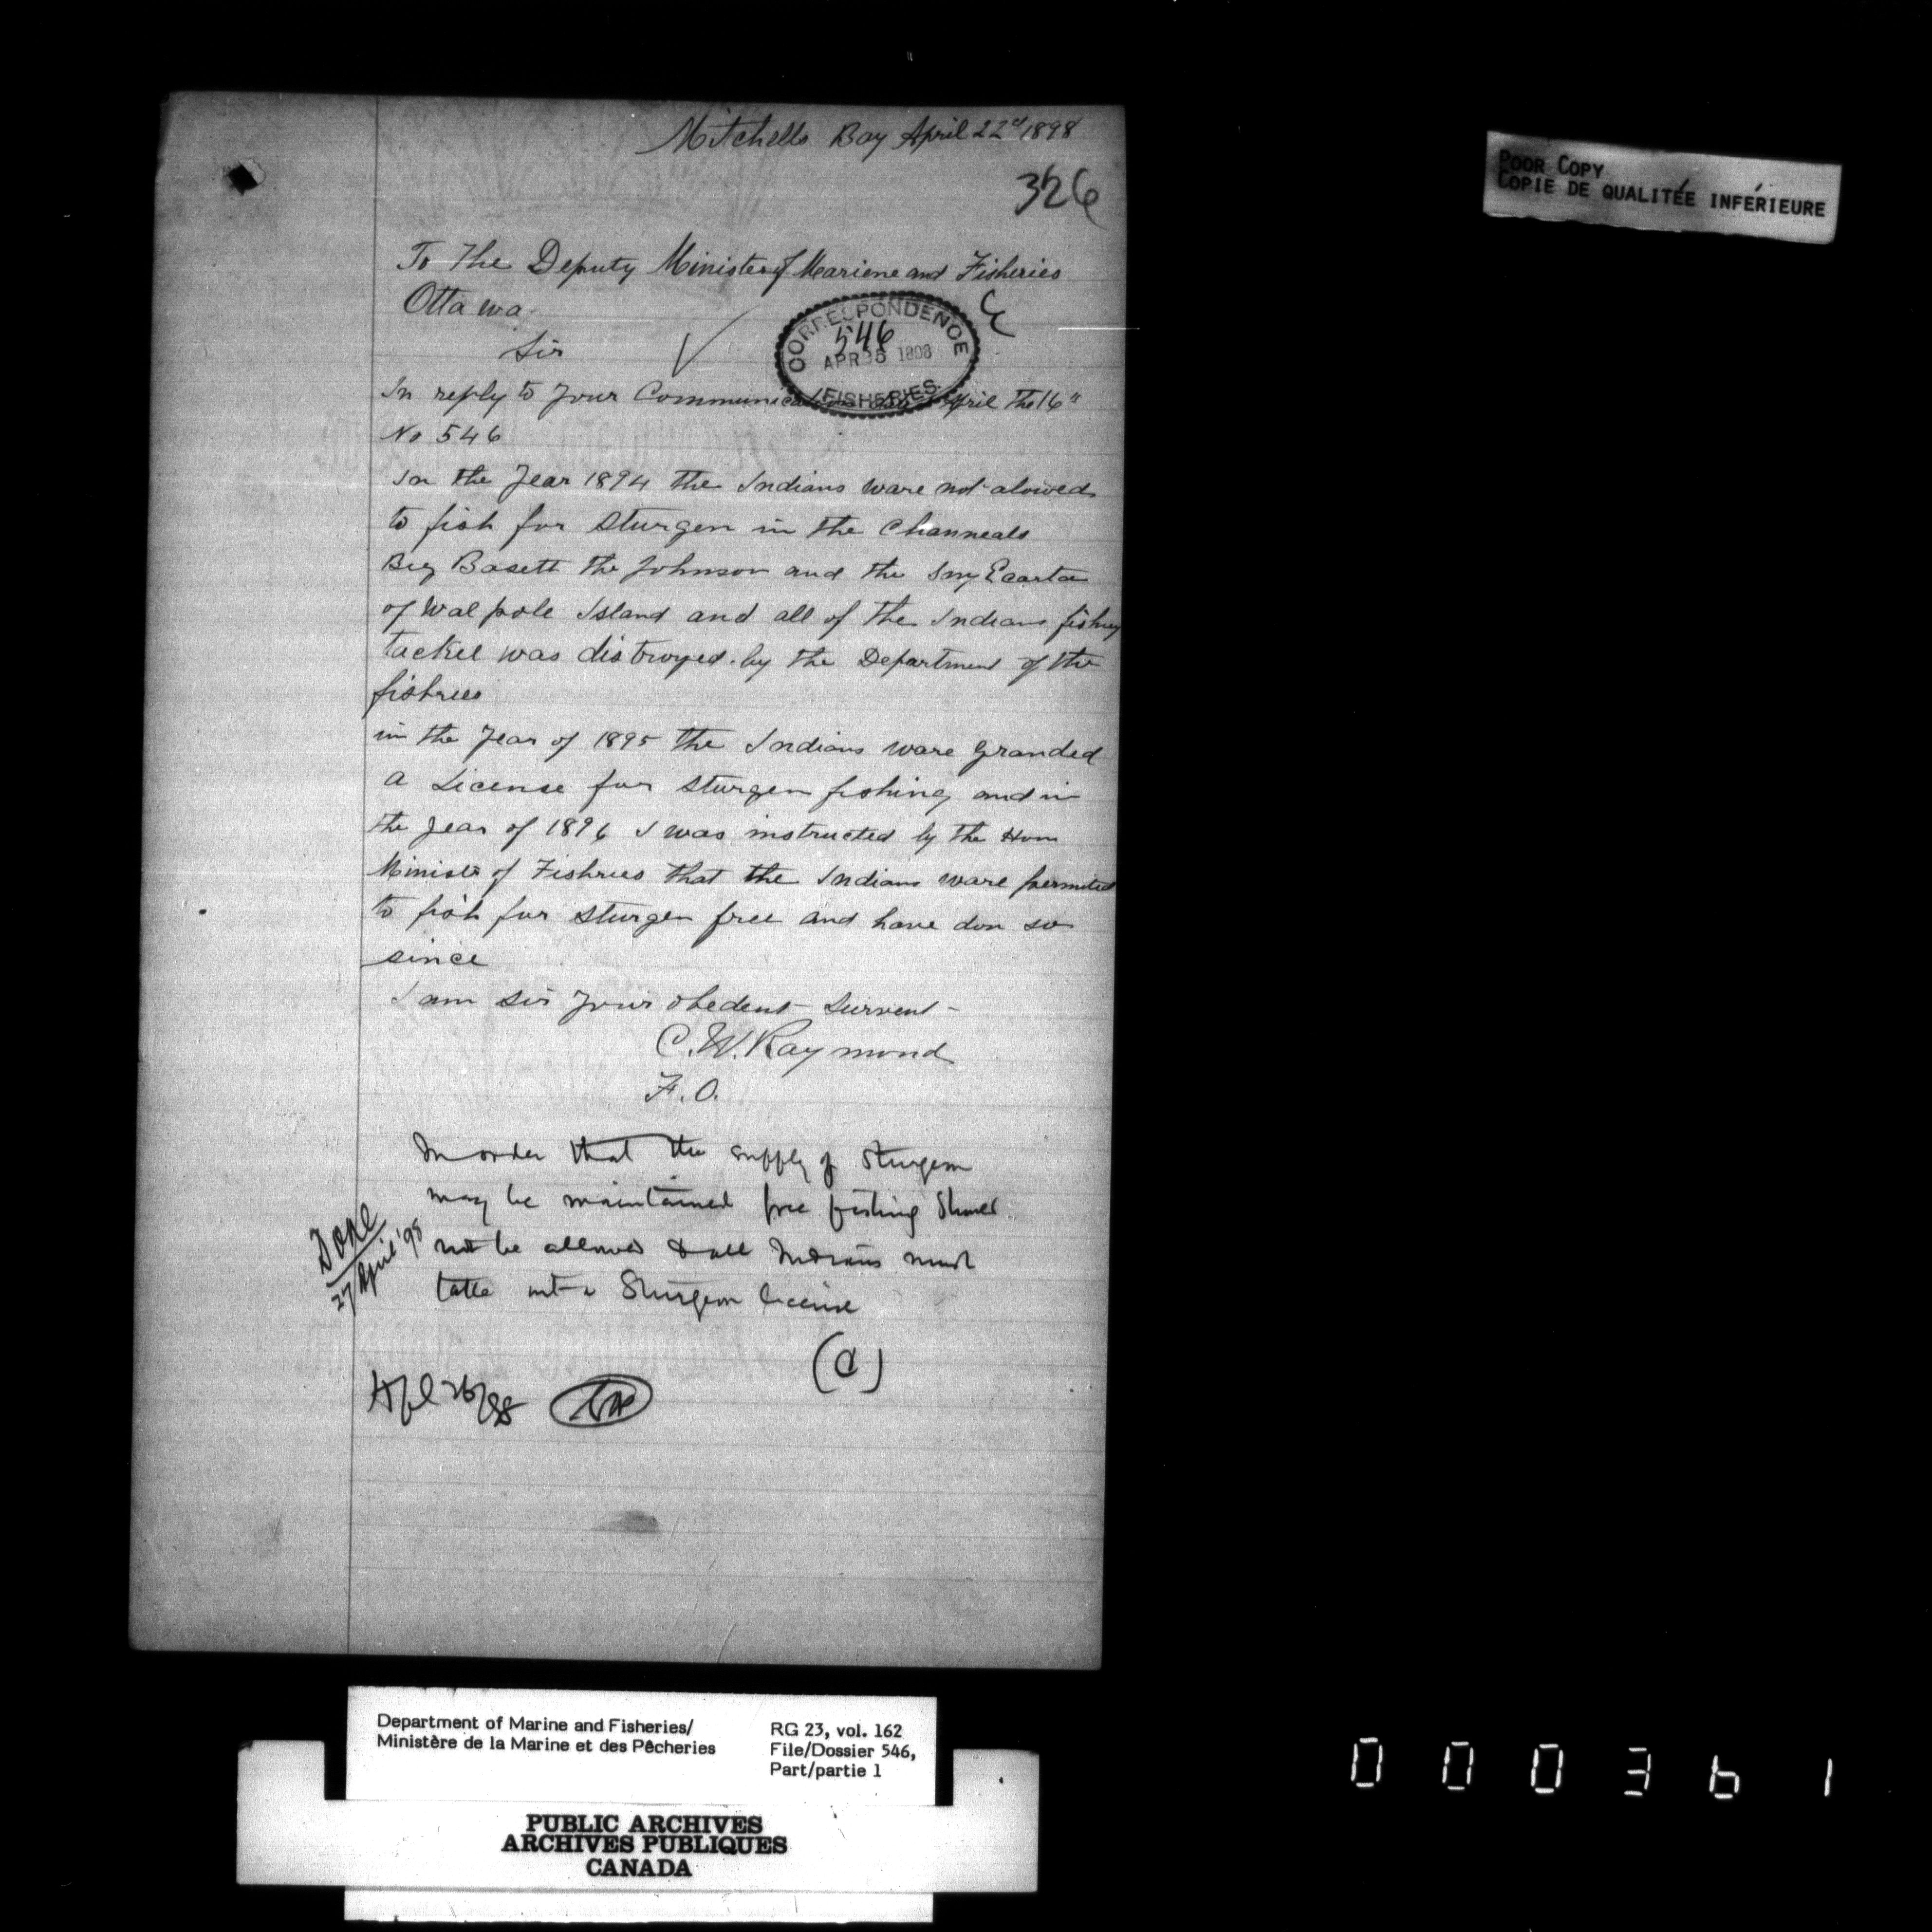 Mitchells Bay April 22d 1898
326
To The Deputy Minister of Mariene and Fisheries
Ottawa
Sir
CORRESPONDENCE
546
APR 25 1898
FISHERIES
In reply to your Communication April the 16"
No 546
In the Year 1894 the Indians ware not alowed
to fish for Sturgen in the Channeals
Big Basett the Johnson and the Sny Ecarta
of Walpole Island and all of the Indians fishing
tackel was distroyed by the Department of the
fishries
in the Year of 1895 the Indians ware Granded
a License for Sturgen fishing and in
the year of 1896 I was instructed by the Hon
Ministe of Fishries that the Indians ware permited
to fish for Sturgen free and have don so
since
I am Sir Your obedent Survent
C. W. Raymond
F. O.
In order that the supply of Sturgeon
may be maintained free fishing should
not be allowed & all Indians must
take out a Sturgeon license
(a)
Done
27 April '98
Apl 26/98
POOR COPY
COPIE DE QUALITÉE INFÉRIEURE
Department of Marine and Fisheries/
Ministère de la Marine et des Pêcheries
RG 23, vol. 162
File/Dossier 546,
Part/partie 1
PUBLIC ARCHIVES
ARCHIVES PUBLIQUES
CANADA
000361